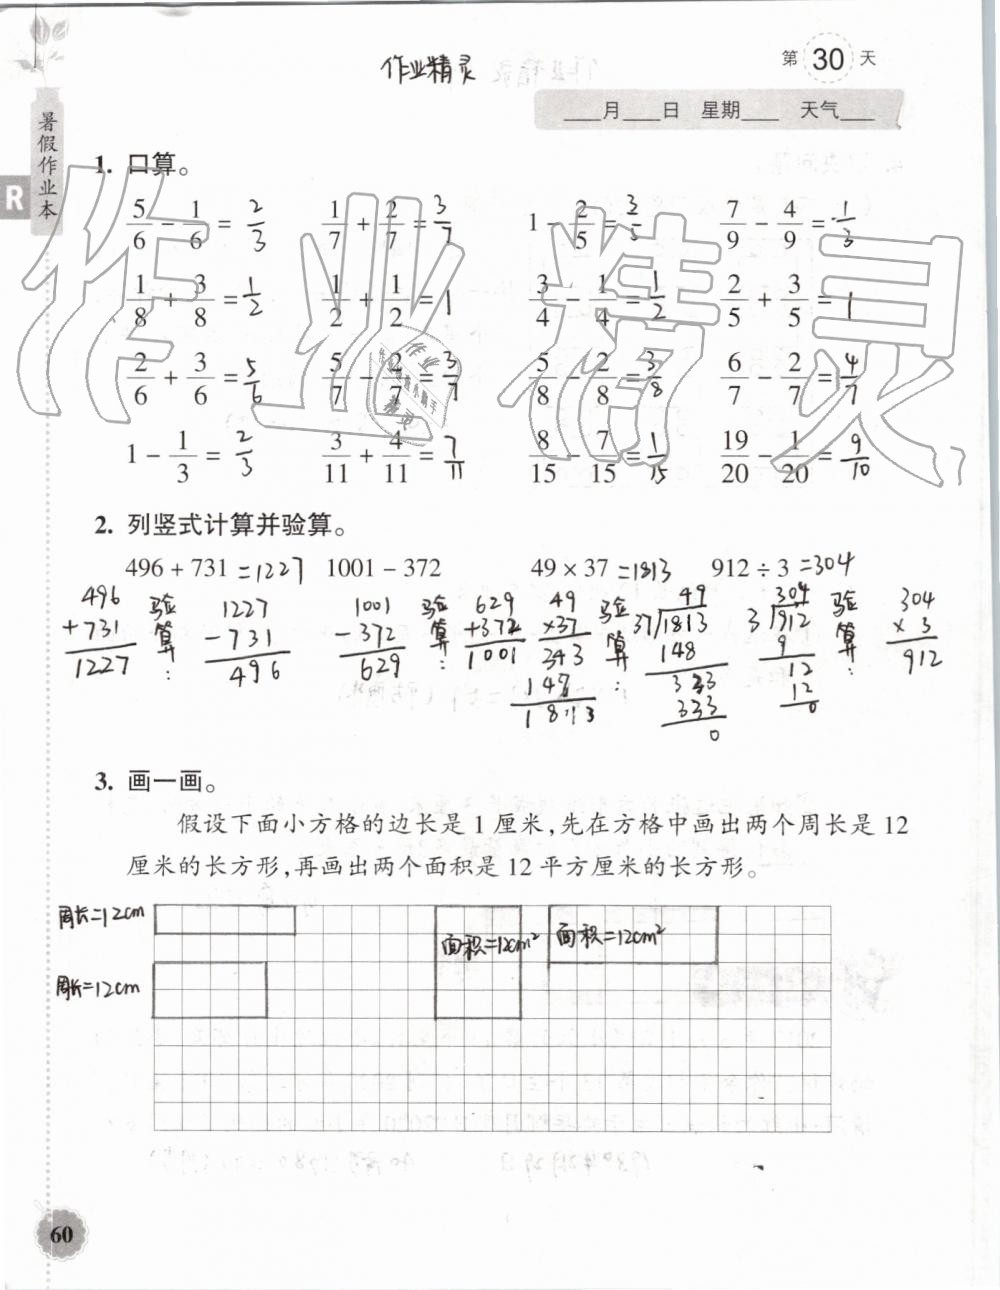 作业精灵
第 30 天
____月____日 星期____ 天气____
暑假作业本
R
1. 口算。
5/6 - 1/6 = 2/3 1/7 + 2/7 = 3/7 1 - 2/5 = 3/5 7/9 - 4/9 = 1/3
1/8 + 3/8 = 1/2 1/2 + 1/2 = 1 3/4 - 1/4 = 1/2 2/5 + 3/5 = 1
2/6 + 3/6 = 5/6 5/7 - 2/7 = 3/7 5/8 - 2/8 = 3/8 6/7 - 2/7 = 4/7
1 - 1/3 = 2/3 3/11 + 4/11 = 7/11 8/15 - 7/15 = 1/15 19/20 - 1/20 = 9/10
作业精灵
2. 列竖式计算并验算。
496 + 731 =1227 1001 - 372 49 × 37 =1813 912 ÷ 3 =304
496 +731 1227
验算: 1227 -731 496
1001 -372 629
验算: 629 +372 1001
49 ×37 343 147 1813
验算: 49 37 1813 148 333 333 0
304 3 912 9 12 12 0
验算: 304 ×3 912
3. 画一画。
假设下面小方格的边长是 1 厘米,先在方格中画出两个周长是 12
厘米的长方形,再画出两个面积是 12 平方厘米的长方形。
周长=12cm
面积=12cm²
面积=12cm²
周长=12cm
60